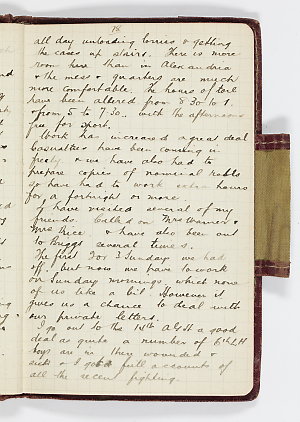 18
all day unloading lorries & getting
the cases up stairs. There is more
room here than in Alexandria
& the mess & quarters are much
more comfortable. The hours of toil
have been altered from 8.30 to 1.
& from 5 to 7.30. with the afternoons
free for sport.
Work has increased a great deal
Casualties have been coming in
freely & we have also had to
prepare copies of nominal rolls
so have had to work extra hours
for a fortnight or more.
I have visited several of my
friends. Called on Mrs Warnock &
Mrs Rice & have also been out
to Briggs several times.
The first 2 or 3 Sundays we had
off, but now we have to work
on Sunday mornings which none
of us like a bit. However it
gives us a chance to deal with
our private letters.
I go out to the 14th AGH a good
deal as quite a number of 6th LH
boys are in there wounded &
sick & I got full accounts of
all the recent fighting.